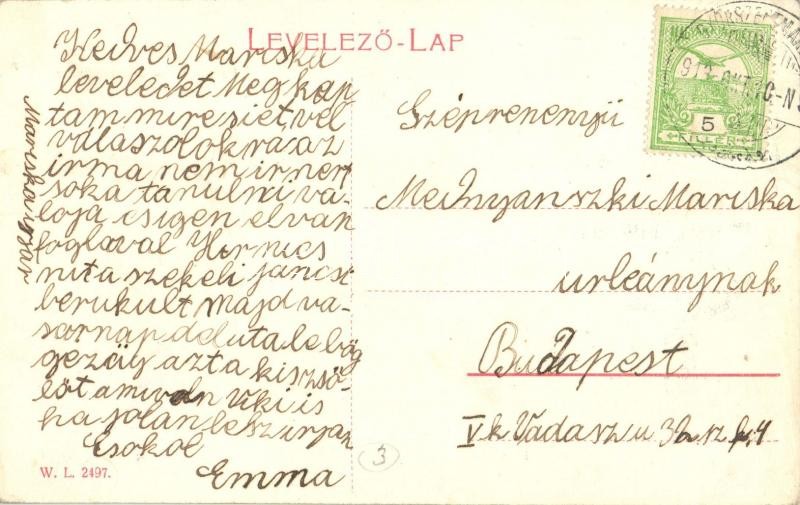 LEVELEZŐ-LAP
Kedves Mariska
leveledet Megkap
tam mire sietvél
válaszolok rá az
irma nem ir nert
soka tanulni va-
loja csigen elvan
foglaval Hirnics
nita szekeli jancsi
berukult majd va-
sarnap délutale
gezáig azta kiszsö-
löt amivan Viki is
ha jolan lesz irjan
Csokol
Emma
Mariska iszar
Szépreményü
Mednyanszki Mariska
urleánynak
Budapest
V k Vadasz u 32 sz
5
FILLÉR
W. L. 2497.
3